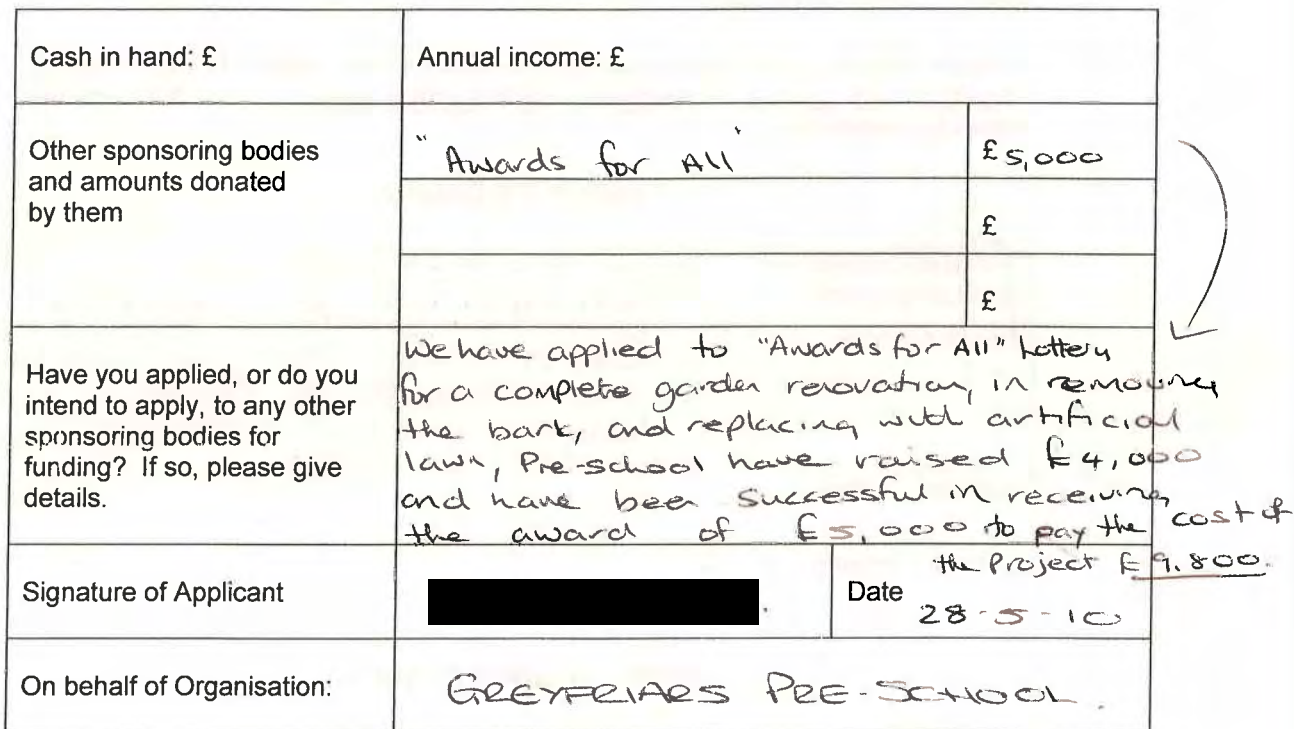 Cash in hand: £
Annual income: £
Other sponsoring bodies
and amounts donated
by them
"Awards for All"
£5,000
£
£
Have you applied, or do you
intend to apply, to any other
sponsoring bodies for
funding? If so, please give
details.
We have applied to "Awards for All" Lottery
for a complete garden renovation, in removing
the bark, and replacing with artificial
lawn, Pre-school have raised £4,000
and have been successful in receiving
the award of £5,000 to pay the cost of
the Project £9.800.
Signature of Applicant
Date
28-5-10
On behalf of Organisation:
GREYFRIARS PRE-SCHOOL.